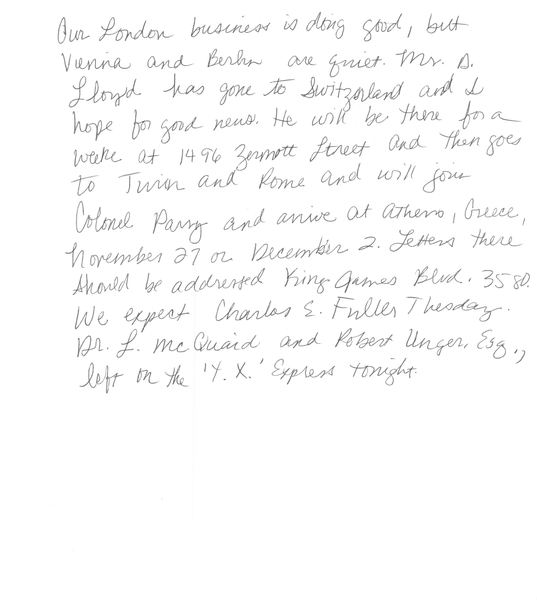 Our London business is doing good, but
Vienna and Berlin are quiet. Mr. D.
Lloyd has gone to Switzerland and I
hope for good news. He will be there for a
week at 1496 Zermott Street and then goes
to Turin and Rome and will join
Colonel Parry and arrive at Athens, Greece,
November 27 or December 2. Letters there
should be addressed King James Blvd. 3580.
We expect Charles E. Fuller Tuesday.
Dr. L. McQuaid and Robert Unger, Esq.,
left on the 'Y. X.' Express tonight.